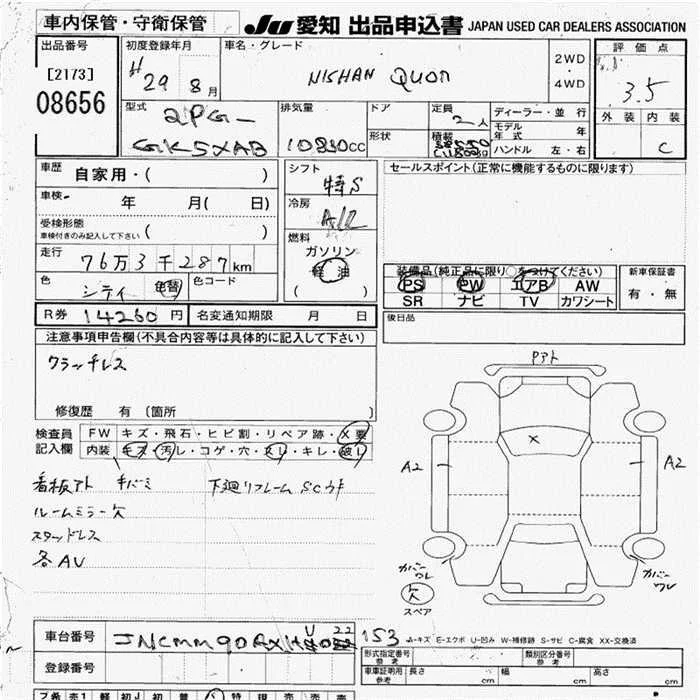 車内保管・守衛保管
JU 愛知 出品申込書 JAPAN USED CAR DEALERS ASSOCIATION
出品番号
[2173]
08656
初度登録年月
H29年8月
車名・グレード
NISHAN QUON
2WD
・
4WD
評価点
3.5
外装 内装
C
型式
2PG-
GK5XAB
排気量
10830cc
ドア
形状
定員
2人
積載
ディーラー・並行
モデル年式 年
ハンドル 左・右
車歴
自家用・( )
車検
年 月( 日)
受検形態
車検付きのみ記入して下さい ( )
走行
76万3千287km
色
シティ
色替
色コード
シフト
特S
冷房
A/C
燃料
ガソリン
軽油
( )
セールスポイント(正常に機能するものに限ります)
装備品(純正品に限り○をつけてください)
PS PW エアB AW
SR ナビ TV カワシート
新車保証書
有・無
R券 14260円 名変通知期限 月 日
後日品
注意事項申告欄(不具合内容等は具体的に記入して下さい)
クラッチレス
修復歴 有 〔箇所 〕
検査員
記入欄
FW キズ・飛石・ヒビ割・リペア跡・X要
内装 キズ・汚レ・コゲ・穴・スレ・キレ・破レ
看板アト キバミ 下廻リフレームSCウキ
ルームミラー欠
スタッドレス
各AU
Pアト
X
A2
A2
カバーワレ
カバーワレ
欠
スペア
車台番号
登録番号
153
A-キズ E-エクボ U-凹み W-補修跡 S-サビ C-腐食 XX-交換済
形式指定番号
参考
類別区分番号
参考
車庫証明用
参考
長さ cm 幅 cm 高さ cm